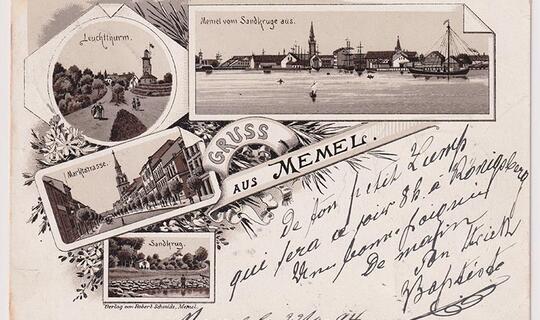 Leuchtthurm.
Memel vom Sandkruge aus.
Marktstrasse.
GRUSS
AUS MEMEL.
Sandkrug.
Verlag von Robert Schmidt, Memel.
De ton petit
qui sera ce soir 8h à Königsberg
Une bonne poignée
De main
Baptiste